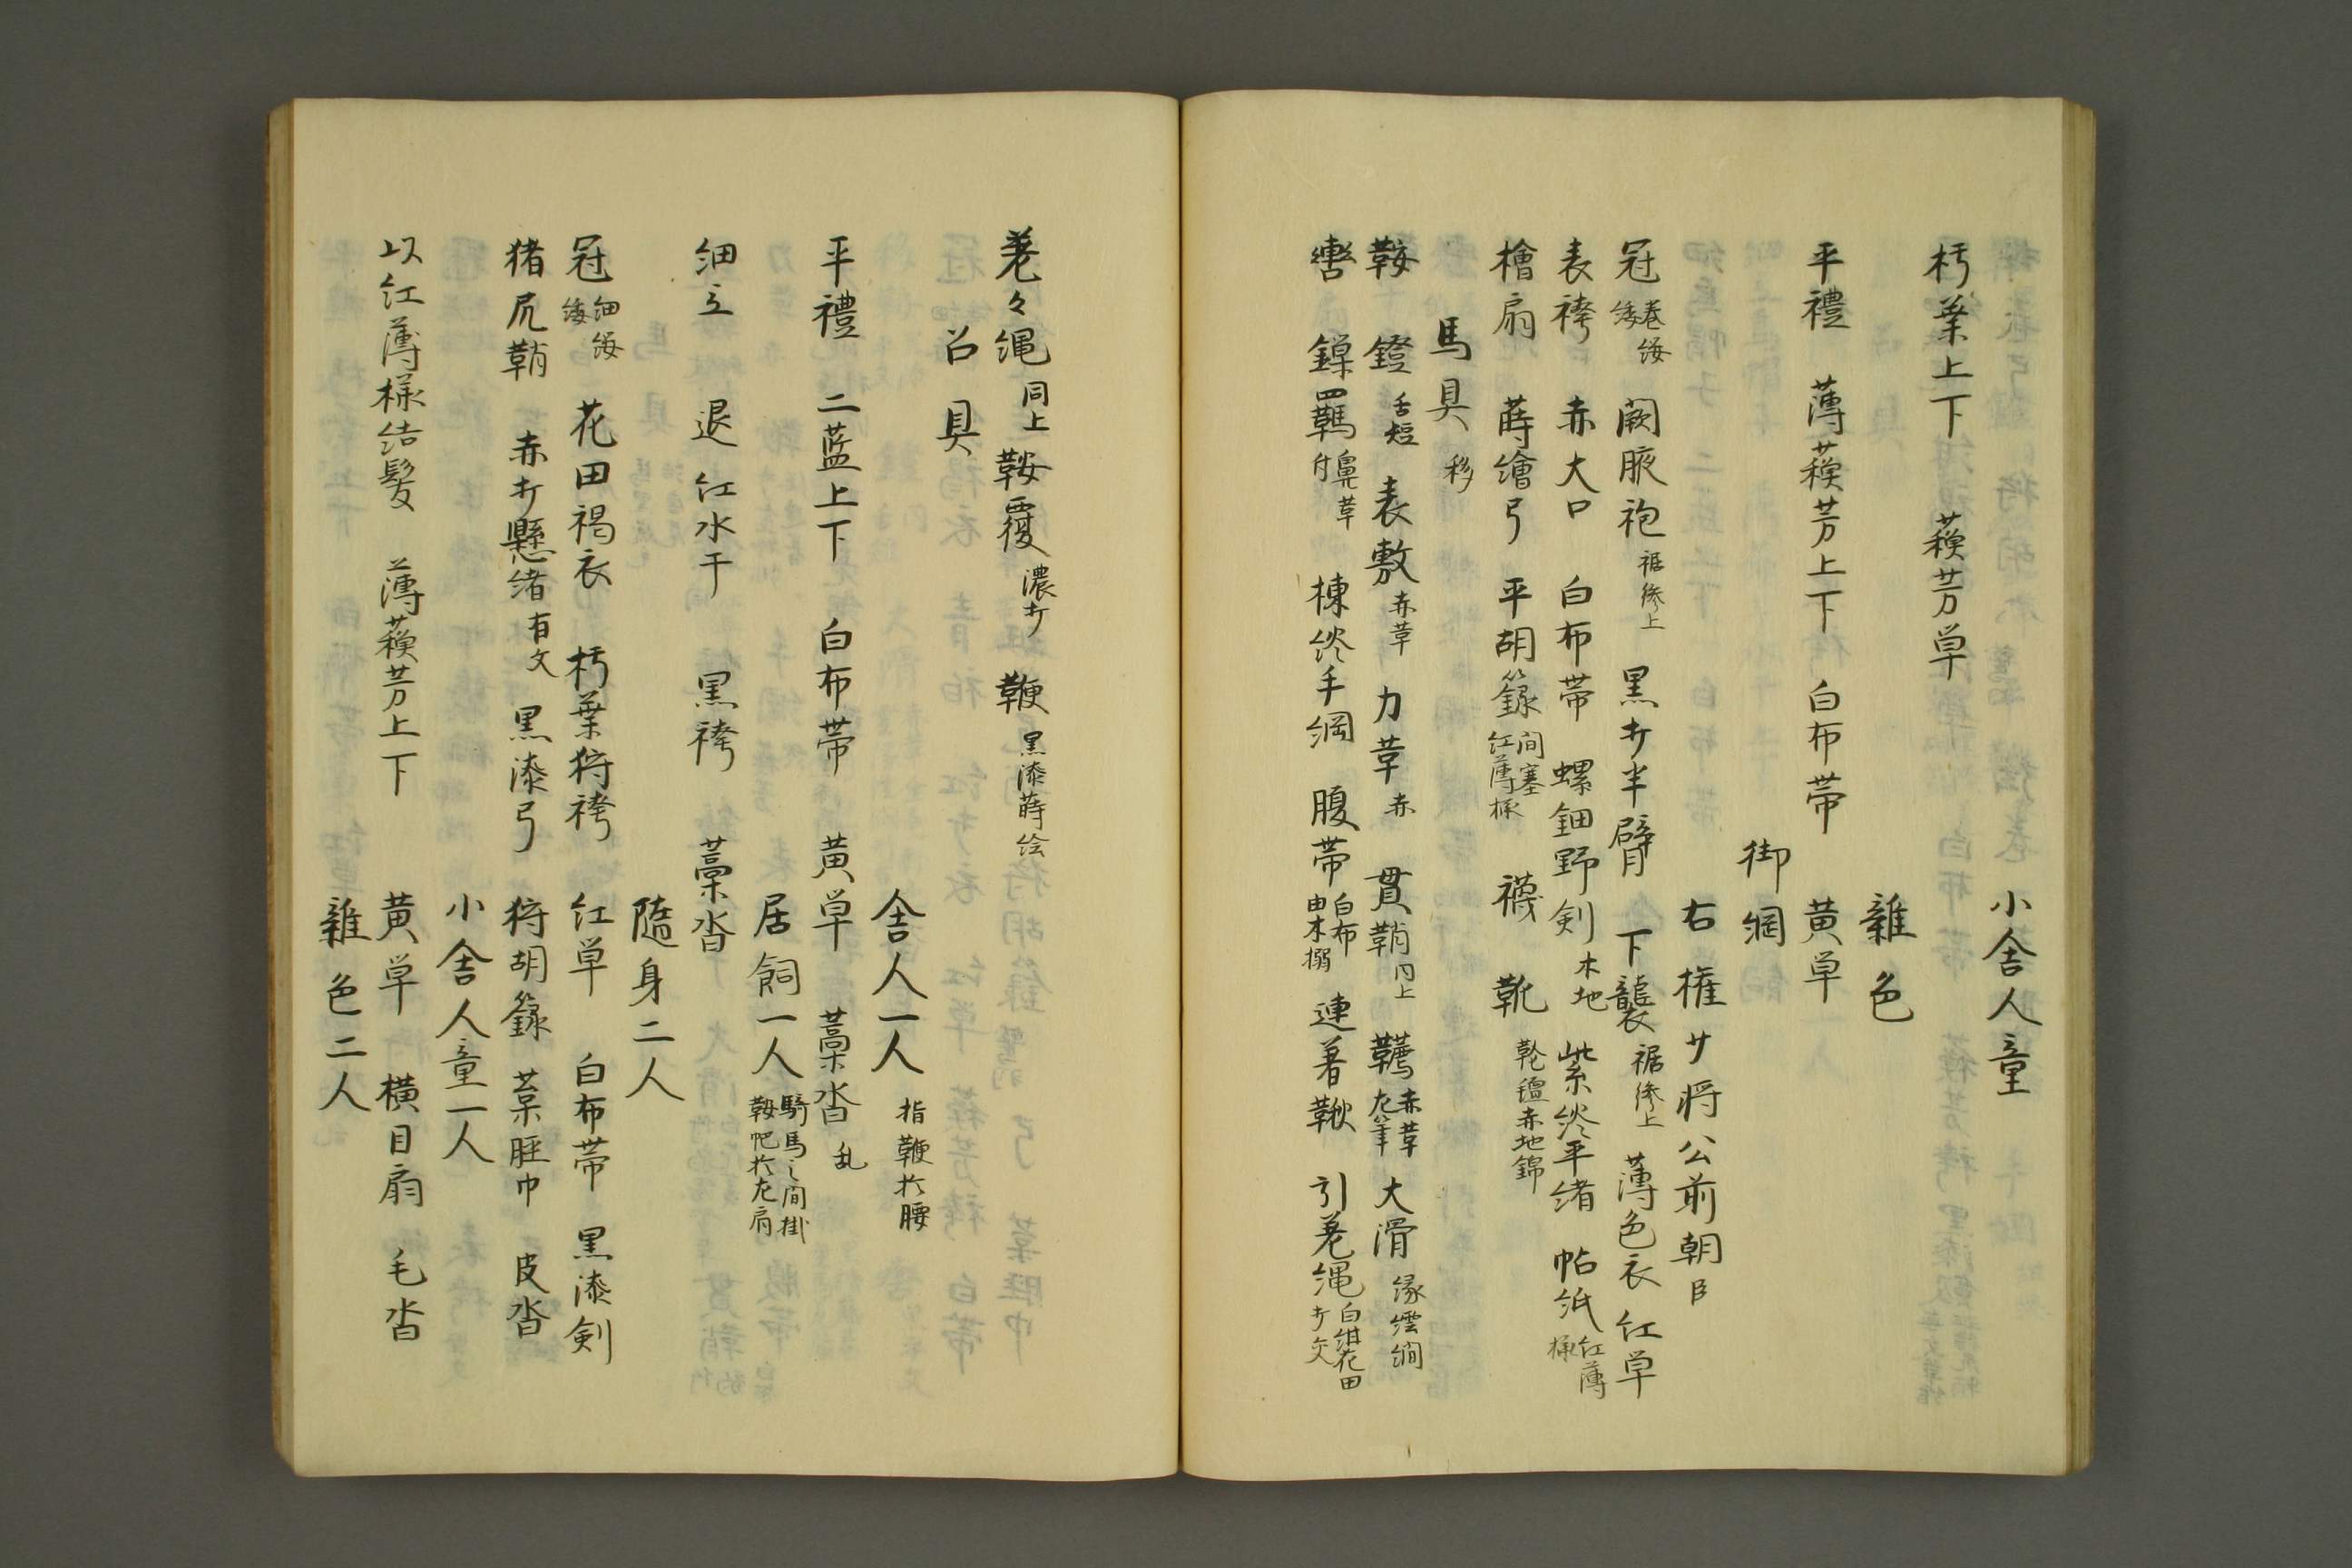 小舎人童
朽葉上下　蘓芳単
雑色
平禮　薄蘓芳上下　白布帯　黄単
御綱
右権少将公前朝臣
冠巻纓緌　闕腋袍裾絛上　黒打半臂　下襲裾絛上　薄色衣　紅単
表袴　赤大口　白布帯　螺鈿野剣木地　紫終平緒　帖紙紅薄様
檜扇　蒔繪弓　平胡籙間塞紅薄様　襪　靴靴氊赤地錦
馬具移
鞍　鐙舌短　表敷赤革　力革赤　貫鞘同上　韉赤革左筆　大滑縁繧繝
轡　鏁羈付鼻革　楝終手綱　腹帯白布由木搦　連着鞦　引差縄白紺花田打交
差々縄同上　鞍覆濃打　鞭黒漆蒔絵
召具
舎人一人指鞭於腰
平禮　二藍上下　白布帯　黄単　藁沓乱
居飼一人騎馬之間掛鞍帊於左肩
細立　退紅水干　黒袴　藁沓
随身二人
冠細纓緌　花田褐衣　朽葉狩袴　紅単　白布帯　黒漆剣
猪尻鞘　赤打懸緒有文　黒漆弓　狩胡籙　葉脛巾　皮沓
小舎人童一人
以紅薄様結髪　薄蘓芳上下　黄単　横目扇　毛沓
雑色二人